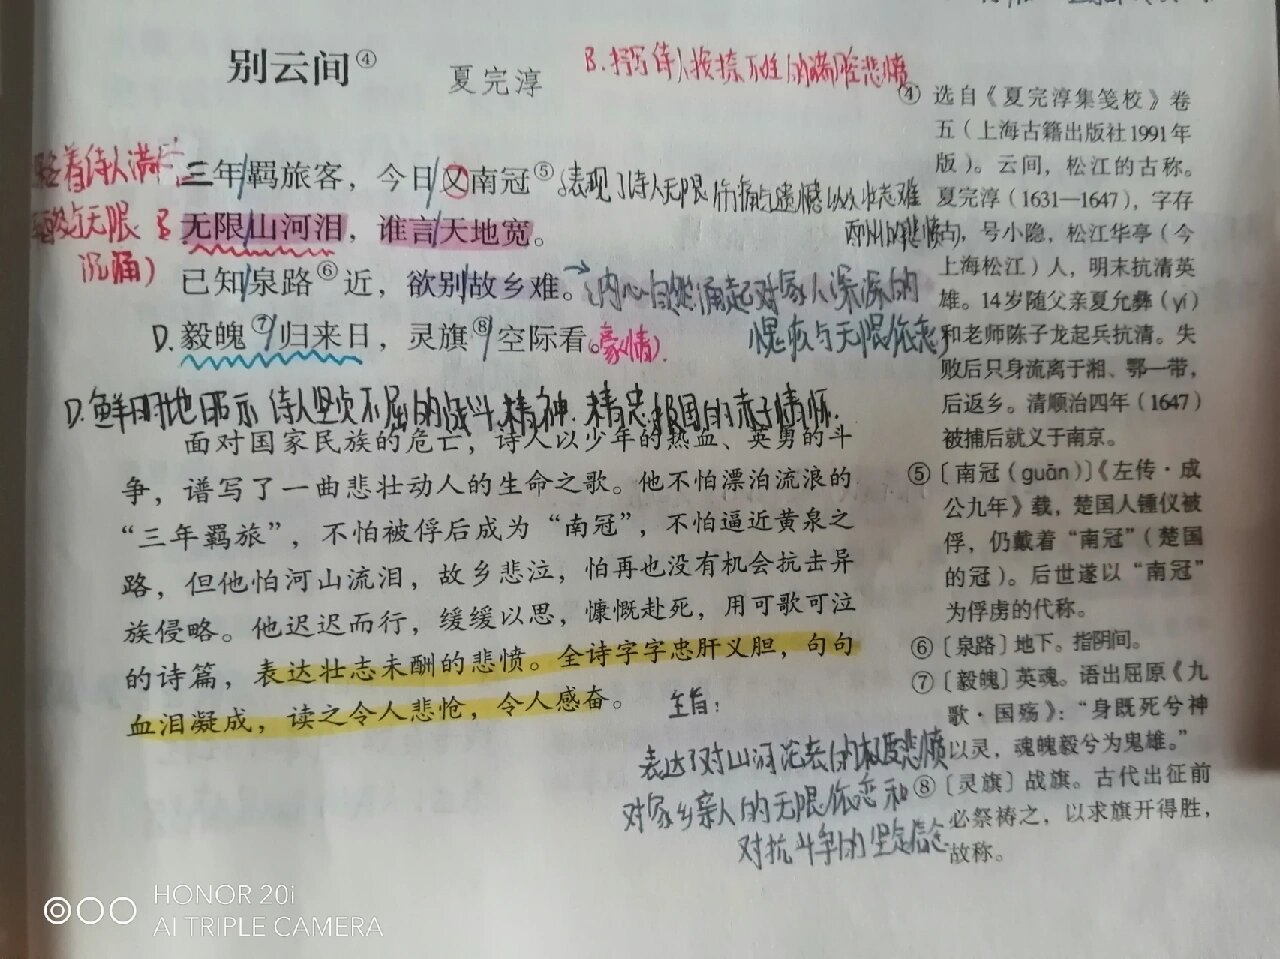 别云间④
夏完淳
B.抒写诗人按捺不住的满腔悲愤
着诗人满
与无限
沉痛)
三年羁旅客，今日又南冠⑤
表现了诗人无限伤痛与遗憾以及壮志难
无限山河泪，谁言天地宽。
的悲愤
已知泉路⑥近，欲别故乡难。
→内心自然涌起对家人深深的
愧疚与无限依恋
D.毅魄⑦归来日，灵旗⑧空际看。
(豪情)
D.鲜明地昭示诗人坚贞不屈的战斗精神.精忠报国的赤子情怀.
面对国家民族的危亡，诗人以少年的热血、英勇的斗
争，谱写了一曲悲壮动人的生命之歌。他不怕漂泊流浪的
“三年羁旅”，不怕被俘后成为“南冠”，不怕逼近黄泉之
路，但他怕河山流泪，故乡悲泣，怕再也没有机会抗击异
族侵略。他迟迟而行，缓缓以思，慷慨赴死，用可歌可泣
的诗篇，表达壮志未酬的悲愤。全诗字字忠肝义胆，句句
血泪凝成，读之令人悲怆，令人感奋。
主旨：
表达了对山河沦丧的极度悲愤
对家乡亲人的无限依恋和
对抗斗争的坚定信念
④ 选自《夏完淳集笺校》卷
五（上海古籍出版社1991年
版）。云间，松江的古称。
夏完淳（1631—1647），字存
古，号小隐，松江华亭（今
上海松江）人，明末抗清英
雄。14岁随父亲夏允彝（yí）
和老师陈子龙起兵抗清。失
败后只身流离于湘、鄂一带，
后返乡。清顺治四年（1647）
被捕后就义于南京。
⑤〔南冠（guān）〕《左传·成
公九年》载，楚国人锺仪被
俘，仍戴着“南冠”（楚国
的冠）。后世遂以“南冠”
为俘虏的代称。
⑥〔泉路〕地下。指阴间。
⑦〔毅魄〕英魂。语出屈原《九
歌·国殇》：“身既死兮神
以灵，魂魄毅兮为鬼雄。”
⑧〔灵旗〕战旗。古代出征前
必祭祷之，以求旗开得胜，
故称。
HONOR 20i
AI TRIPLE CAMERA